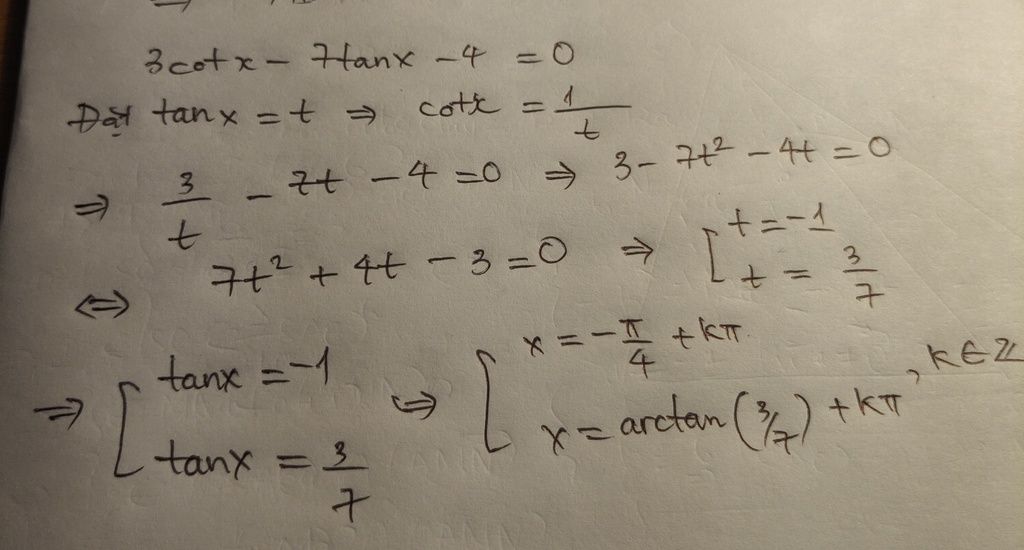 3cotx - 7tanx - 4 = 0
Đặt tanx = t ⇒ cotx = 1/t
⇒ 3/t - 7t - 4 = 0 ⇒ 3 - 7t² - 4t = 0
⇔ 7t² + 4t - 3 = 0 ⇒ [ t = -1
t = 3/7
⇒ [ tanx = -1 ⇔ [ x = -π/4 + kπ
tanx = 3/7 x = arctan(3/7) + kπ , k ∈ ℤ